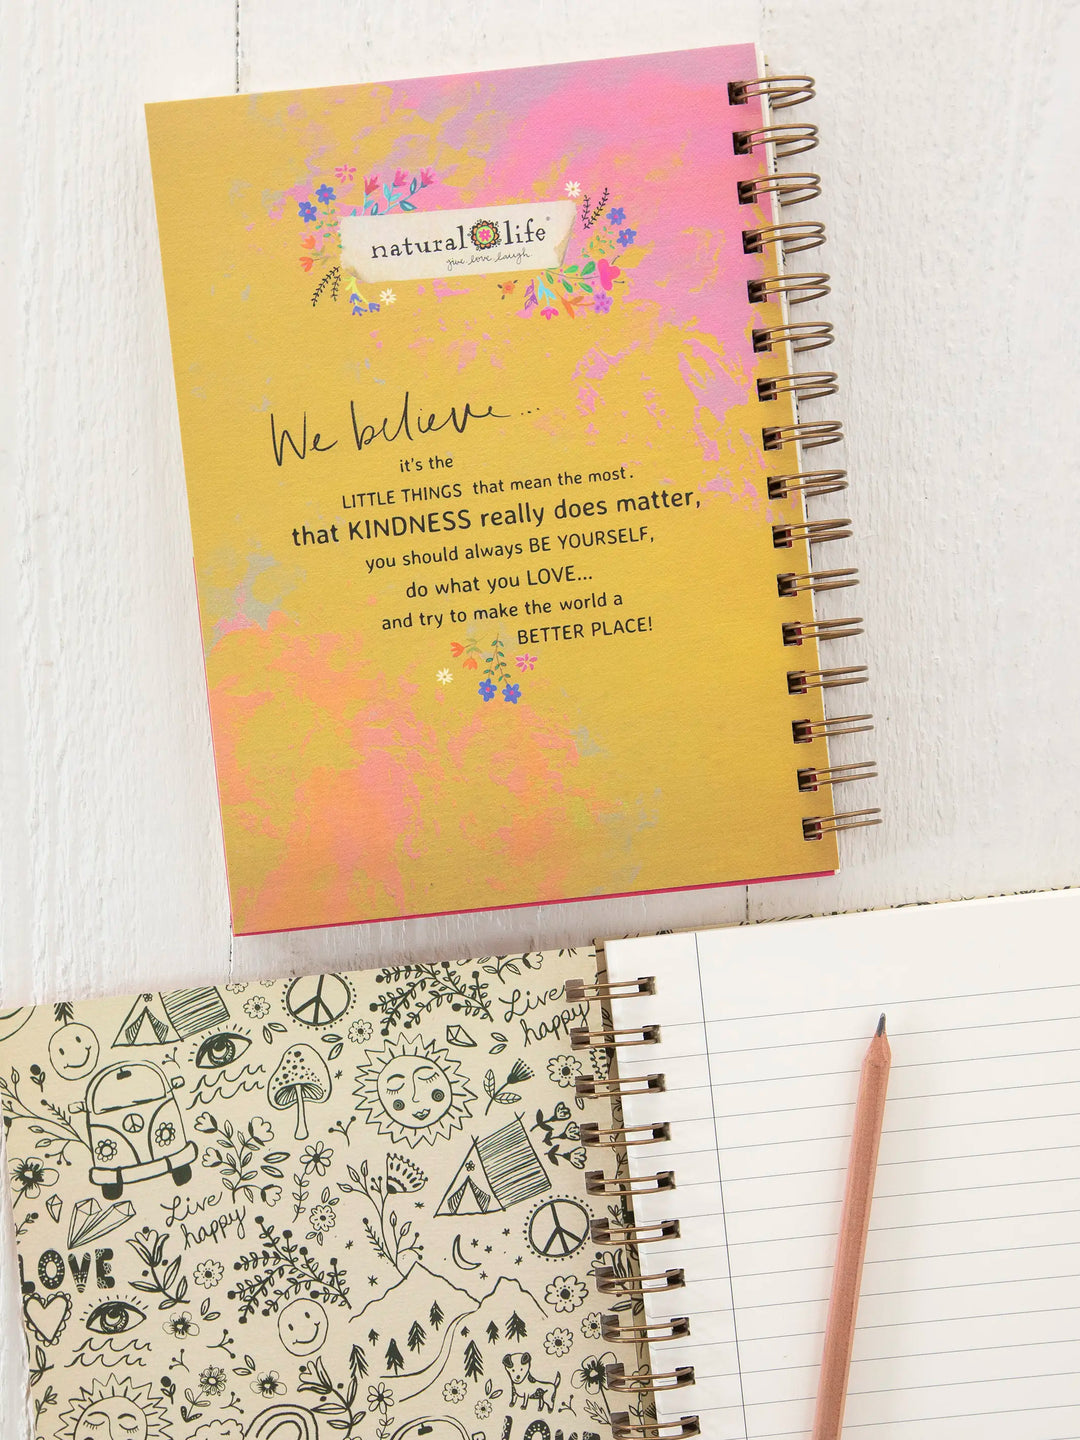 natural life®
give love laugh.
We believe...
it's the
LITTLE THINGS that mean the most.
that KINDNESS really does matter,
you should always BE YOURSELF,
do what you LOVE...
and try to make the world a
BETTER PLACE!
Live
happy
Live
happy
LOVE
LOVE